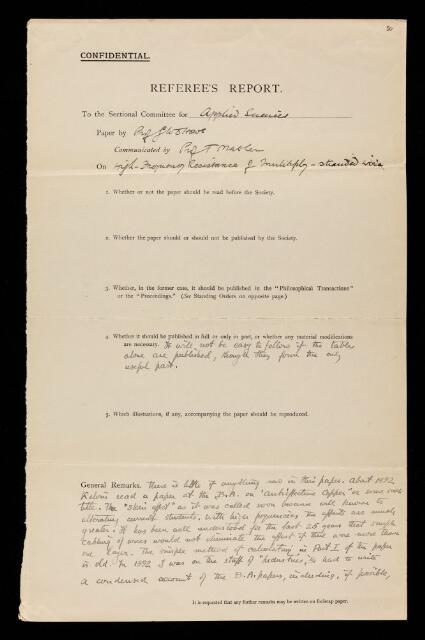 50
CONFIDENTIAL.
REFEREE'S REPORT.
To the Sectional Committee for Applied Sciences
Paper by Prof G W O Howe
Communicated by Prof T Mather
On High-Frequency Resistance of Multiply-stranded wire
1. Whether or not the paper should be read before the Society.
2. Whether the paper should or should not be published by the Society.
3. Whether, in the former case, it should be published in the "Philosophical Transactions"
or the "Proceedings." (See Standing Orders on opposite page.)
4. Whether it should be published in full or only in part, or whether any material modifications
are necessary. It will not be easy to follow if the tables
alone are published, though they form the only
useful part.
5. Which illustrations, if any, accompanying the paper should be reproduced.
General Remarks. There is little if anything new in this paper. About 1892,
Kelvin read a paper at the B.A. on "Anti-effective Copper" or some such
title. The "skin effect" as it was called soon became well known to
alternating current students. With high frequencies the effects are much
greater. It has been well understood for the last 25 years that simple
cabling of wires would not eliminate the effect if there were more than
one layer. The simple method of calculating in Part I of the paper
is old. In 1892 I was on the staff of "Industries," & had to write
a condensed account of the B.A. papers, including, if possible,
It is requested that any further remarks may be written on foolscap paper.